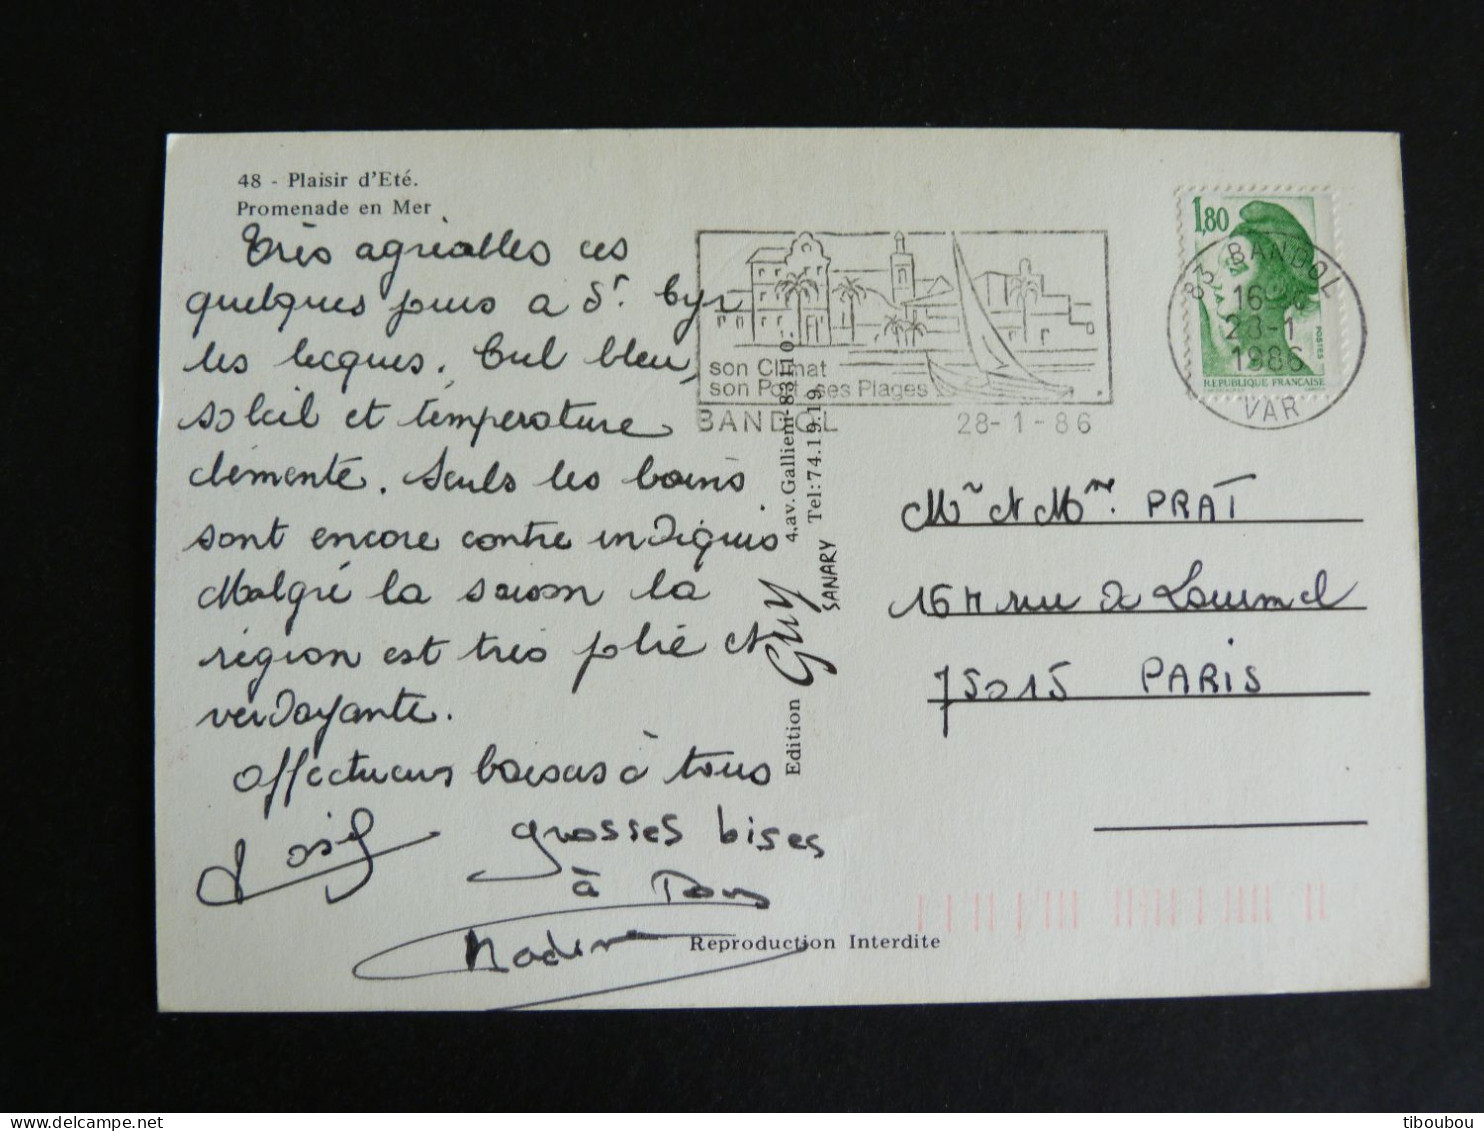 48 - Plaisir d'Eté.
Promenade en Mer
très agréables ces
quelques jours a St. Cyr
les lecques. Ciel bleu,
soleil et température
clémente. Seuls les bains
sont encore contre indiqués
Malgré la saison la
région est très jolie et
verdoyante.
Affectueux baisers à tous
grosses bises
à Tous
Nadine
Reproduction Interdite
Edition GUY 4.av. Gallieni-83110.
SANARY Tel: 74.19.19
son Climat
son Port ses Plages
BANDOL 28-1-86
1,80
POSTES
REPUBLIQUE FRANÇAISE
83 BANDOL
16
28-1
1986
VAR
Mr et Mme. PRAT
167 rue de Lourmel
75015 PARIS
tiboubou